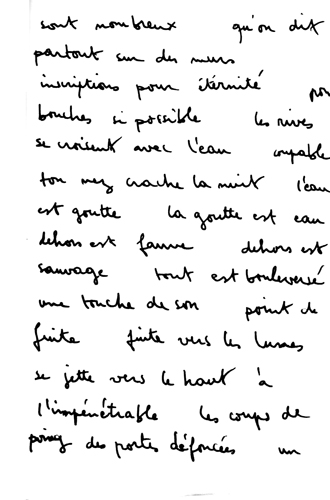 sont nombreux qu'on dit
partout sur des murs
inscriptions pour étérnité
bouches si possible les rives
se croisent avec l'eau coupable
ton nez crache la nuit l'eau
est goutte la goutte est eau
dehors est fauve dehors est
sauvage tout est bouleversé
une touche de son point de
fuite fuite vers les
se jette vers le haut à
l'impénétrable les coups de
poing des portes défoncées un